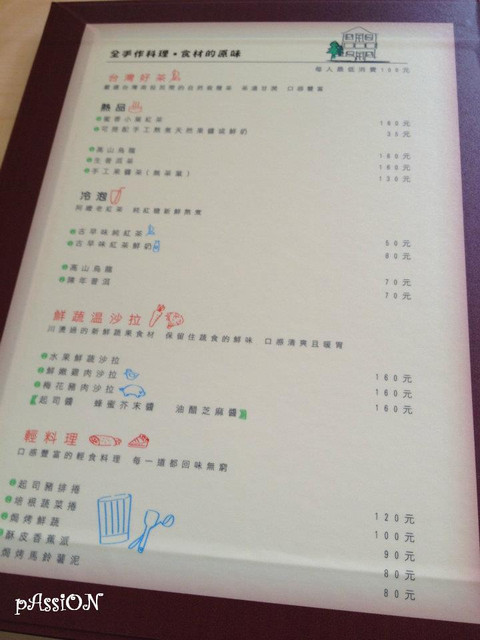 全手作料理・食材的原味
每人最低消費100元
台灣好茶
熱品
蜜香小葉紅茶 180元
可搭配手工熬煮天然果醬或鮮奶 30元
高山烏龍 180元
生普洱茶 180元
手工果醬茶(無茶葉) 130元
冷泡
阿嬤老紅茶 純紅糖新鮮熬煮
古早味純紅茶 50元
古早味紅茶鮮奶 60元
高山烏龍 70元
陳年普洱 70元
鮮蔬溫沙拉
川燙過的新鮮蔬果食材 保留住蔬食的鮮味 口感清爽且暖胃
水果鮮蔬沙拉 160元
鮮嫩雞肉沙拉 160元
梅花豬肉沙拉 160元
【起司醬 蜂蜜芥末醬 油醋芝麻醬】
輕料理
口感豐富的輕食料理 每一道都回味無窮
起司豬排捲 120元
培根蔬菜捲 100元
焗烤鮮蔬 90元
酥皮香蕉派 80元
焗烤馬鈴薯泥 80元
pAssiON